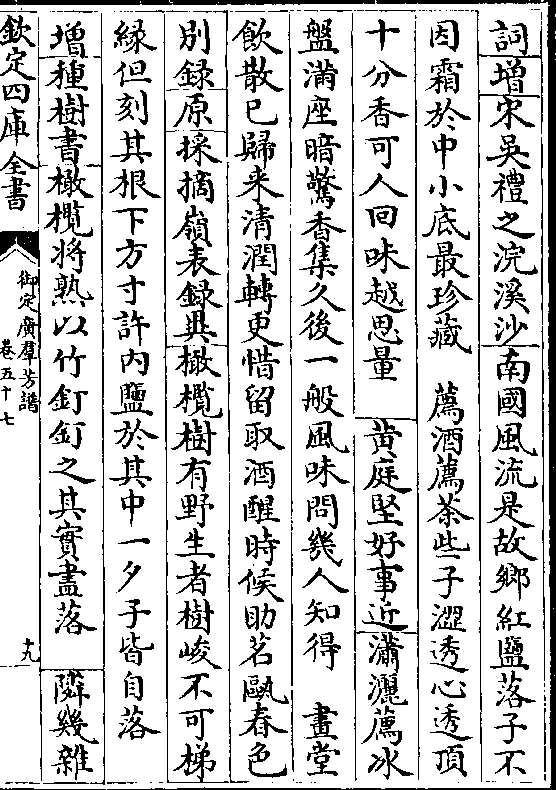 詞增宋吳禮之浣溪沙南國風流是故鄉紅鹽落子不
因霜於中小底最珍藏　薦酒薦茶些子澀透心透頂
十分香可人回味越思量　黃庭堅好事近瀟灑薦冰
盤滿座暗驚香集久後一般風味問幾人知得　畫堂
飲散已歸来清潤轉更惜留取酒醒時候助茗甌春色
別録原採摘嶺表録異橄欖樹有野生者樹峻不可梯
緣但刻其根下方寸許内鹽於其中一夕子皆自落
增種樹書橄欖將熟以竹釘釘之其實盡落　隣幾雜
欽定四庫全書
御定廣羣芳譜
卷五十七
十九